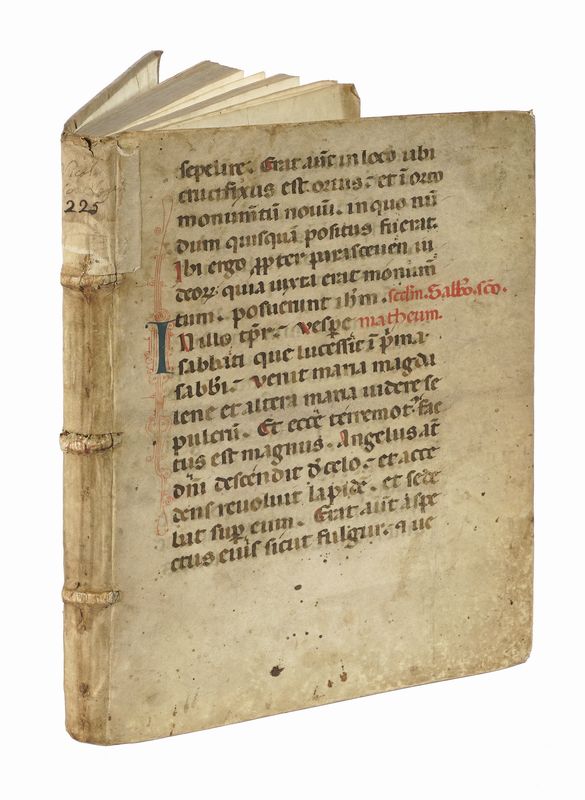 225
sepelire. Erat aūt in loco ubi
crucifixus est ortus. et ī orto
monumtū novū. in quo nū
dum quisquā positus fuerat.
Ibi ergo ꝓpter parasceuen iu
deoꝝ. quia iuxta erat monum̄
tum. posuerunt ihm̄. scdm̄. Sabbo. sc̄o.
In illo tp̄r. Vespe matheum.
sabbati que lucessit ī pͥma
sabbi. venit maria magda
lene et altera maria uidere se
pulcrū. Et ecce terremotꝰ fac
tus est magnus. Angelus aūt
dn̄i descendit d̄ celo. et acce
dens revoluit lapidē. et sede
bat suꝑ eum. Erat aūt aspe
ctus eius sicut fulgur. q ue